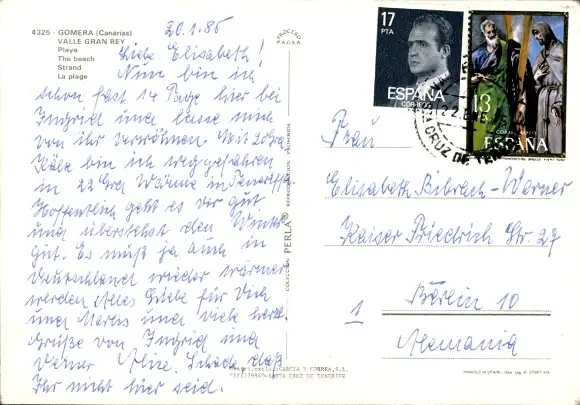 4325 - GOMERA (Canarias)
VALLE GRAN REY
Playa
The beach
Strand
La plage
20.1.85
Liebe Elisabeth!
Nun bin ich
schon fast 14 Tage hier bei
Ingrid und lasse mich
von ihr verwöhnen. Mit 20 Grd
Kälte bin ich weggefahren
in 22 Grd Wärme in Teneriffa
Hoffentlich geht es Dir gut
und überstehst den Winter
gut. Es muß ja auch in
Deutschland wieder wärmer
werden. Alles Liebe für Dich
und und viele herzl.
Grüße von Ingrid und
Werner Schade daß
Ihr nicht hier seid.
COLECCION PERLA® REPRODUCCION PROHIBIDA
GARCIA Y CORREA, S.L.
SANTA CRUZ DE TENERIFE
17
PTA
ESPAÑA
CORREOS
13
ESPAÑA
CRUZ DE
Frau
Elisabeth Bibrach-Werner
Kaiser Friedrich Str. 27
1 Berlin 10
Alemania
PRINTED IN SPAIN